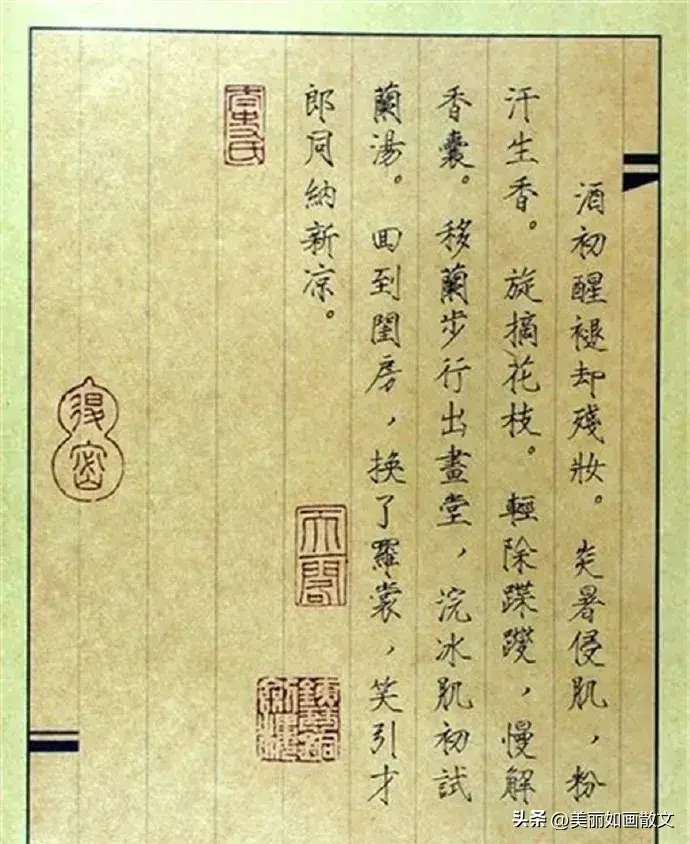 酒初醒褪却殘妝。炎暑侵肌，粉
汗生香。旋摘花枝。輕除蹀躞，慢解
香囊。移蘭步行出畫堂，浣冰肌初試
蘭湯。回到閨房，换了羅裳，笑引才
郎同納新凉。
头条 @美丽如画散文